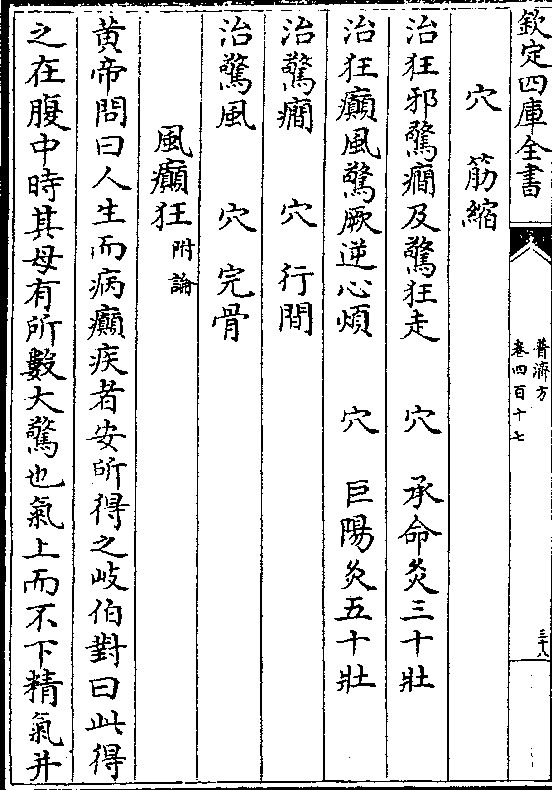 欽定四庫全書
普濟方
卷四百十七
三十八
穴 筋縮
治狂邪驚癎及驚狂走 穴 承命灸三十壯
治狂癲風驚厥逆心煩 穴 巨陽灸五十壯
治驚癎 穴 行間
治驚風 穴 完骨
風癲狂附論
黄帝問曰人生而病癲疾者安所得之岐伯對曰此得
之在腹中時其母有所數大驚也氣上而不下精氣并